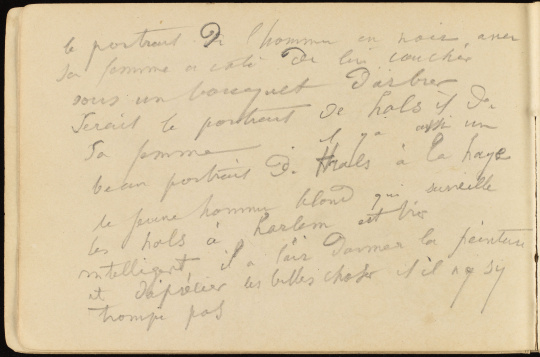 le portrait de l'homme en noir avec
sa femme a coté de lui couché
sous un bouquet d'arbre
serait le portrait de hals et de
sa femme
il y a aussi un
beau portrait de Hals à la haye
le jeune homme blond qui surveille
les hals à harlem est très
intelligent il a l'air d'aimer la peinture
et d'aprécier les belles choses s'il n'y
trompe pas